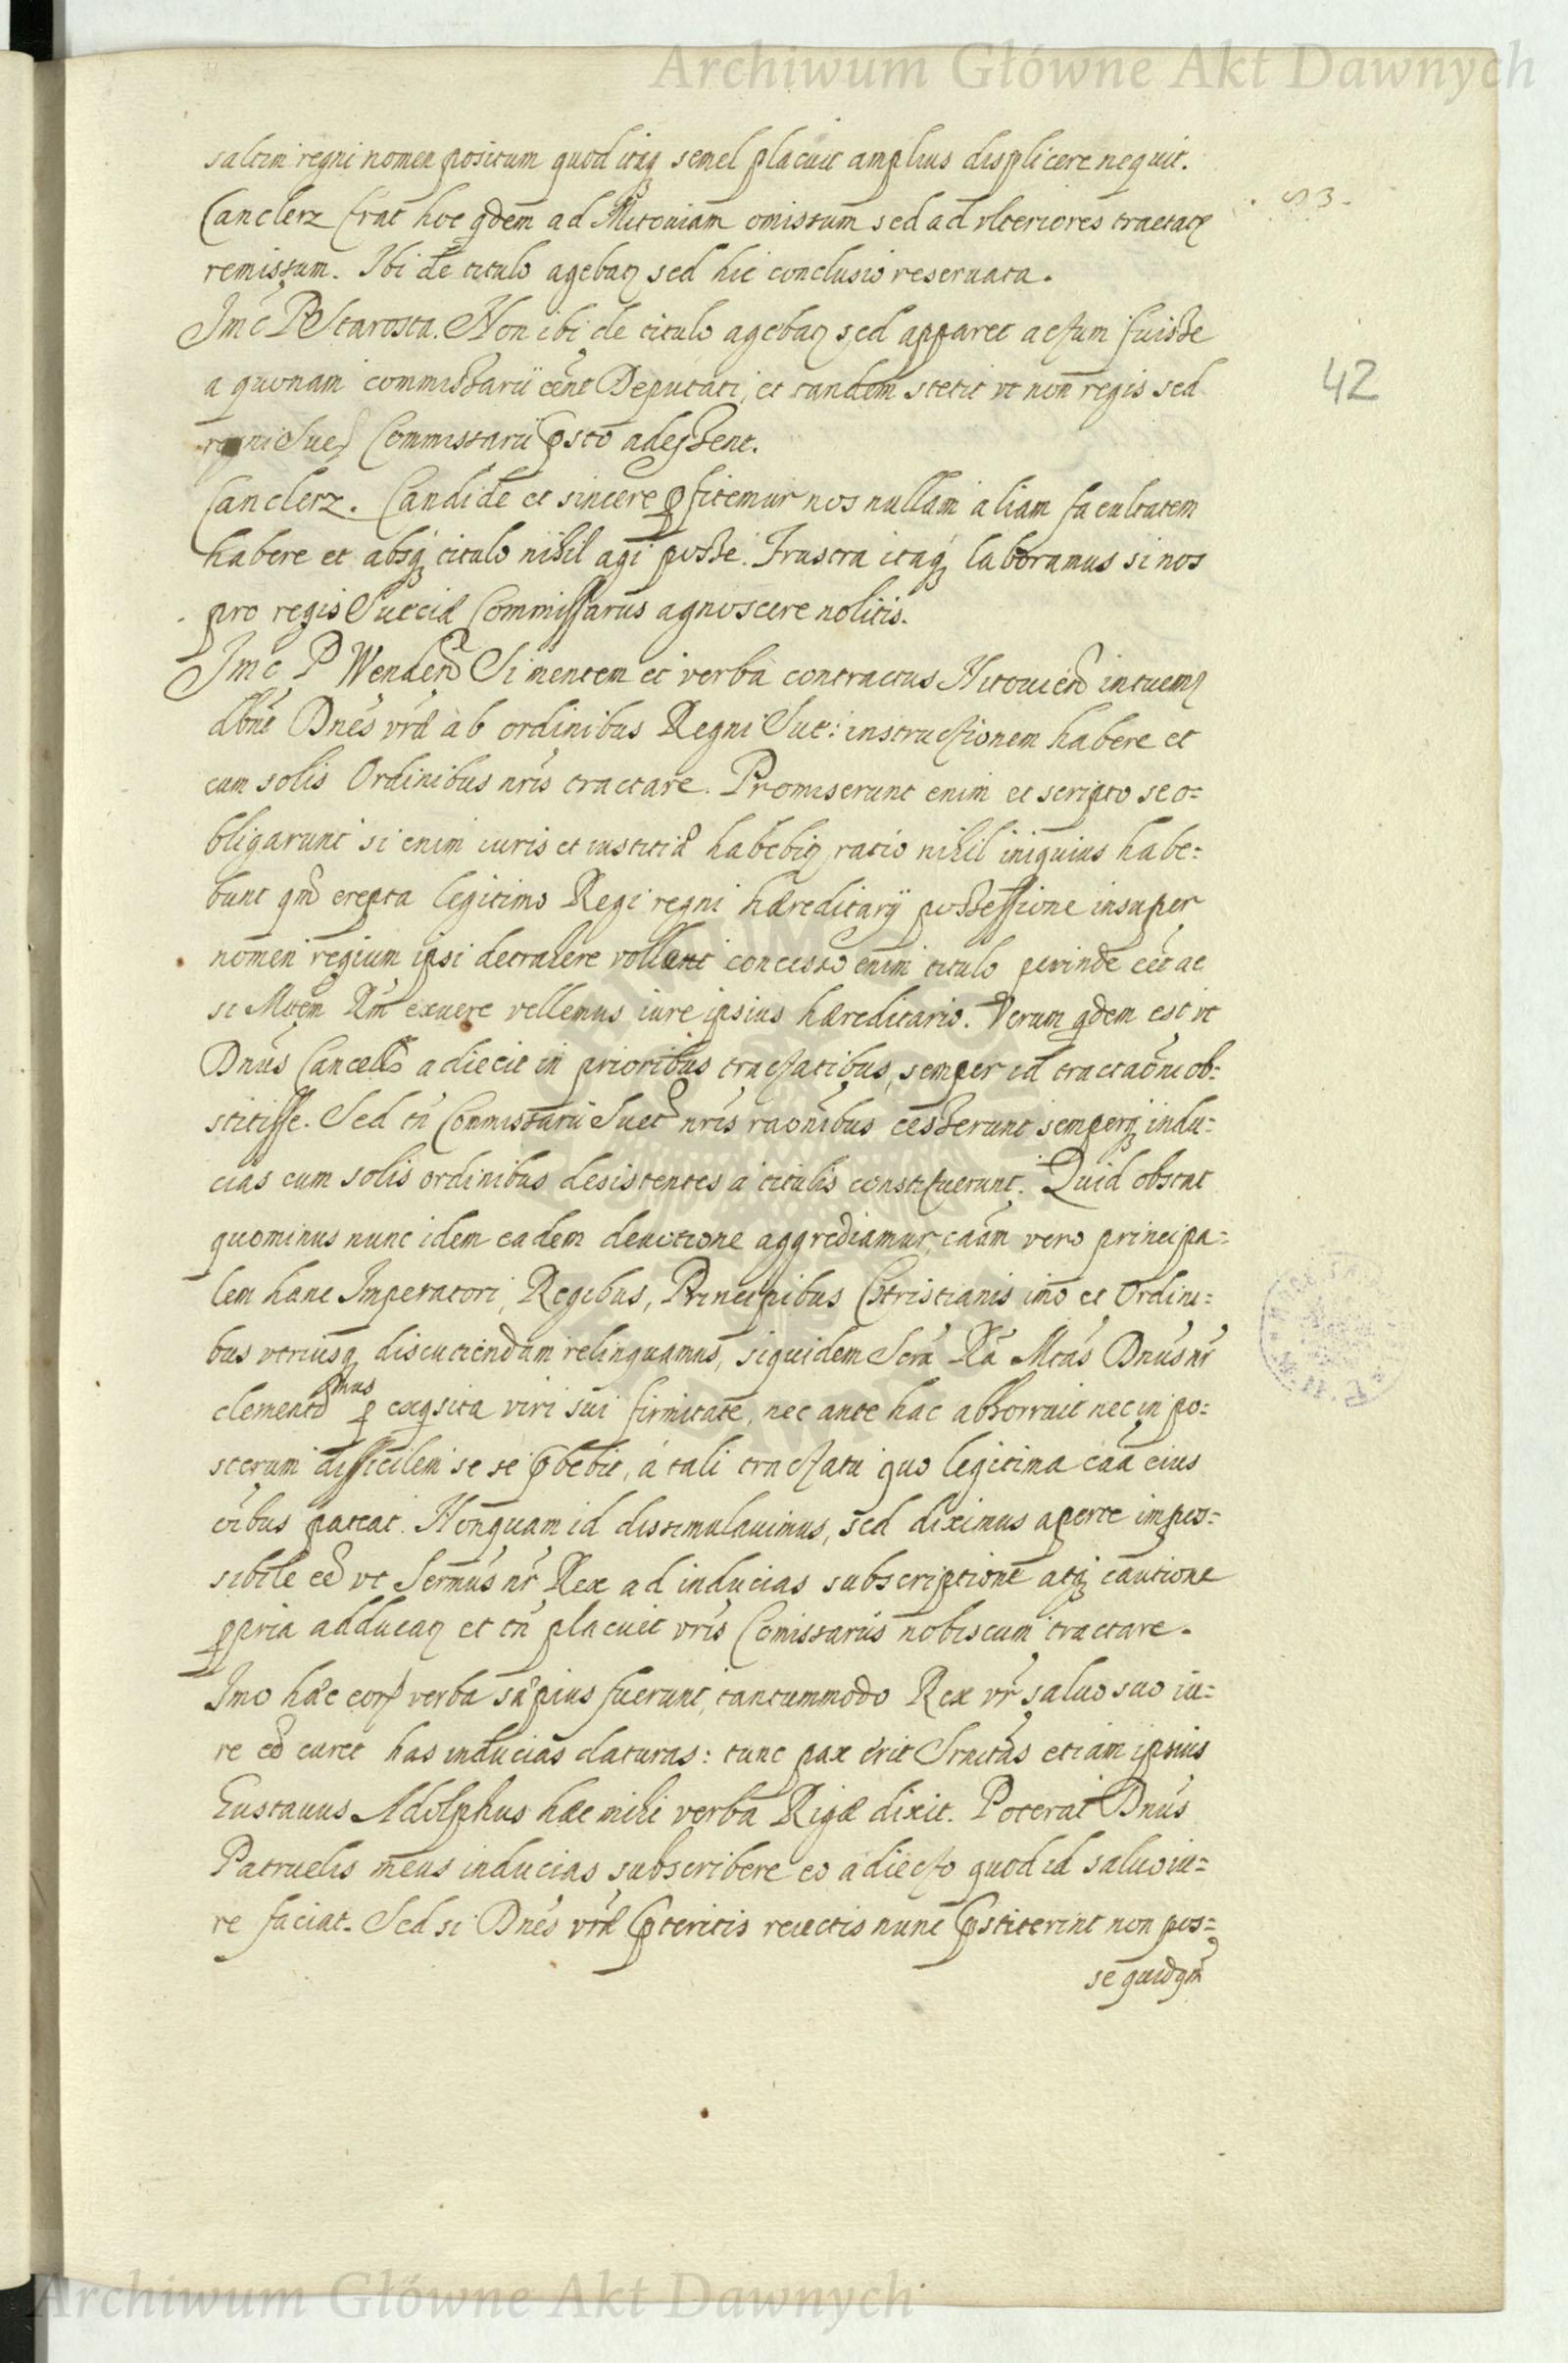 Archiwum Główne Akt Dawnych
saltim regni nomen positum quod itaq semel placuit amplius displicere nequit.
53.
Canclerz Erat hoc qdem ad Mitoviam omissum sed ad vlteriores tractatq
remissum. Ibi de titulo agebatq sed hic conclusio reseruata.
Jmc P Starosta. Non ibi de titulo agebatq sed apparet actum fuisse
42
a quonam commissarii eent Deputati, et tandem stetit vt non regis sed
regni Sueq Commissarii psto adessent.
Canclerz. Candide et sincere pfitemur nos nullam aliam facultatem
habere et absq titulo nihil agi posse. Frustra itaq laboramus si nos
pro regis Sueciæ Commissarus agnoscere nolitis.
Jmc P Wenden Si mentem et verba contractus Mitouien intuemq
dbnt Dnes vræ ab ordinibus Regni Sue: instructionem habere et
cum solis Ordinibus nris tractare. Promiserunt enim et scripto se o=
bligarunt si enim iuris et iustitiæ habebitq ratio nihil iniquius habe=
bunt qm erepta legitimo Regi regni hæreditarij possessione insuper
nomen regium ipsi detrahere vollent concesso enim titulo perinde eet ac
si Mtem Rm exuere vellemus iure ipsius hæreditario. Verum qdem est vt
Dnus Cancell adiecit in prioribus tractatibus, semper id tractaoni ob=
stitisse. Sed tn Commissarii Suec nris raonibus cesserunt semperq indu=
cias cum solis ordinibus desistentes a titulis constituerunt. Quid obstat
quominus nunc idem eadem deuotione aggrediamur, caam vero principa=
lem hanc Imperatori, Regibus, Principibus Christianis imo et Ordini=
bus vtriusq discutiendam relinquamus, siquidem Scra Ra Mtas Dnus nr
clement mus p exqsita viri sui firmitate, nec ante hac abhorruit nec in po=
sterum difficilem se se pbebit, á tali tractatu quo legitima caa eius
oibus pateat. Nonquam id dissimulauimus, sed diximus aperte impos=
sibile ee vt Sermus nr Rex ad inducias subscriptione atq cautione
ppria adducaq et tn placuit vris Comissariis nobiscum tractare.
Imo hæc eorq verba sæpius fuerunt, tantummodo Rex vr saluo suo iu=
re et caret has inducias daturas: tunc pax erit Srnitas etiam ipsius
Gustauus Adolphus hæc mihi verba Rigæ dixit. Poterat Dnus
Patruelis meus inducias subscribere eo adiecto quod id saluo iu=
re faciat. Sed si Dnes vræ pteritis reiectis nunc pstiterint non pos=
se quidqm
Archiwum Główne Akt Dawnych